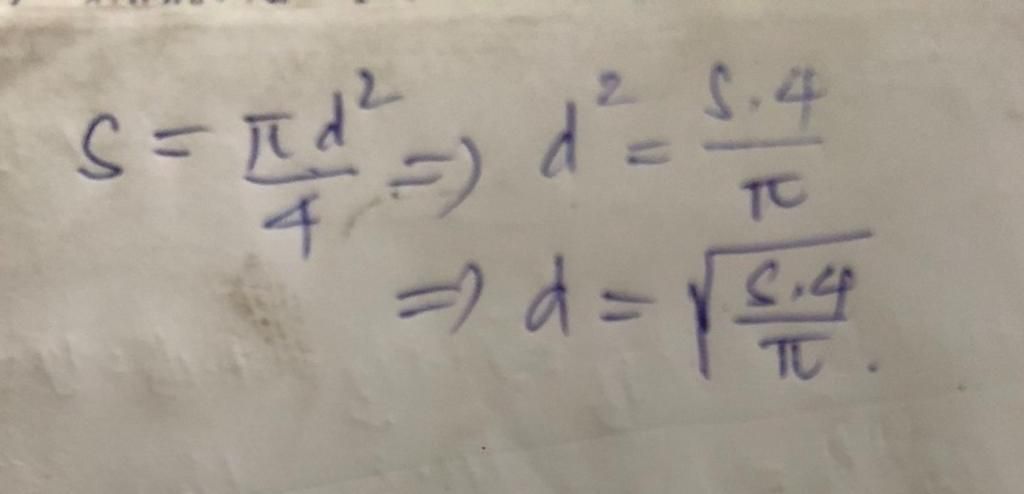 S = πd²/4 => d² = S.4/π
=> d = √(S.4/π).